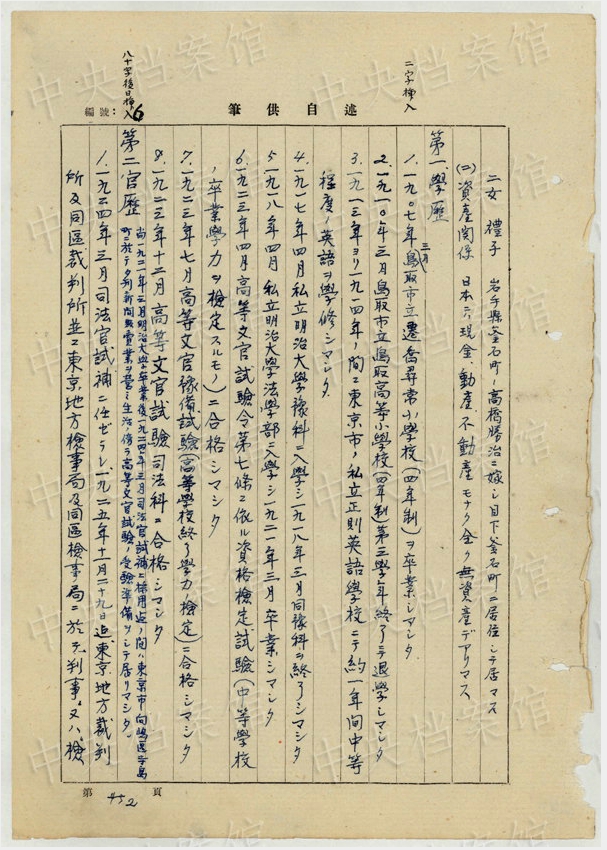 述自供筆
編號:6
二字挿入
八十字後日挿入
二女 禮子 岩手縣釜石町ノ高橋勝治ニ嫁シ目下釜石町ニ居住シテ居マス
(二)資産関係 日本ニハ現金、動産不動産モナク全ク無資産デアリマス
第一、學歴
1. 一九〇七年三月鳥取市立遷喬尋常小學校(四年制)ヲ卒業シマシタ.
2. 一九一〇年三月鳥取市立鳥取高等小學校(四年制)第三學年終了テ退學シマシタ
3. 一九一三年ヨリ一九一四年ノ間ニ東京市ノ私立正則英語學校ニテ約一年間中等
程度ノ英語ヲ學修シマシタ
4. 一九一七年四月私立明治大學豫科ニ入學シ一九一八年三月同豫科ヲ終了シマシタ
5. 一九一八年四月私立明治大學法學部ニ入學シ一九二一年三月卒業シマシタ
6. 一九二三年四月高等文官試驗令第七條ニ依ル資格檢定試驗(中等學校
ノ卒業學力ヲ檢定スルモノ)ニ合格シマシタ
7. 一九二三年七月高等文官豫備試驗(高等學校終了學力ノ檢定)ニ合格シマシタ
8. 一九二三年十二月高等文官試驗司法科ニ合格シマシタ
尚一九二一年三月明治大學卒業後一九二四年三月司法官試補ニ採用迄ノ間ハ東京市向島區寺島
町ニ於テ夕刊新聞販賣業ヲ營ミ生活ノ傍ラ高等文官試驗ノ受驗準備ヲシテ居リマシタ.
第二官歴
1. 一九二四年三月司法官試補ニ任ゼラレ一九二五年十一月二十九日迄東京地方裁判
所及同區裁判所並ニ東京地方檢事局及同區檢事局ニ於テ判事又ハ檢
第 452 頁
中央档案馆